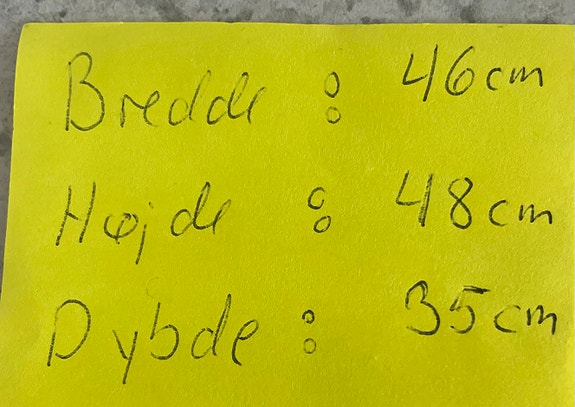 Bredde : 46cm
Højde : 48cm
Dybde : 35cm